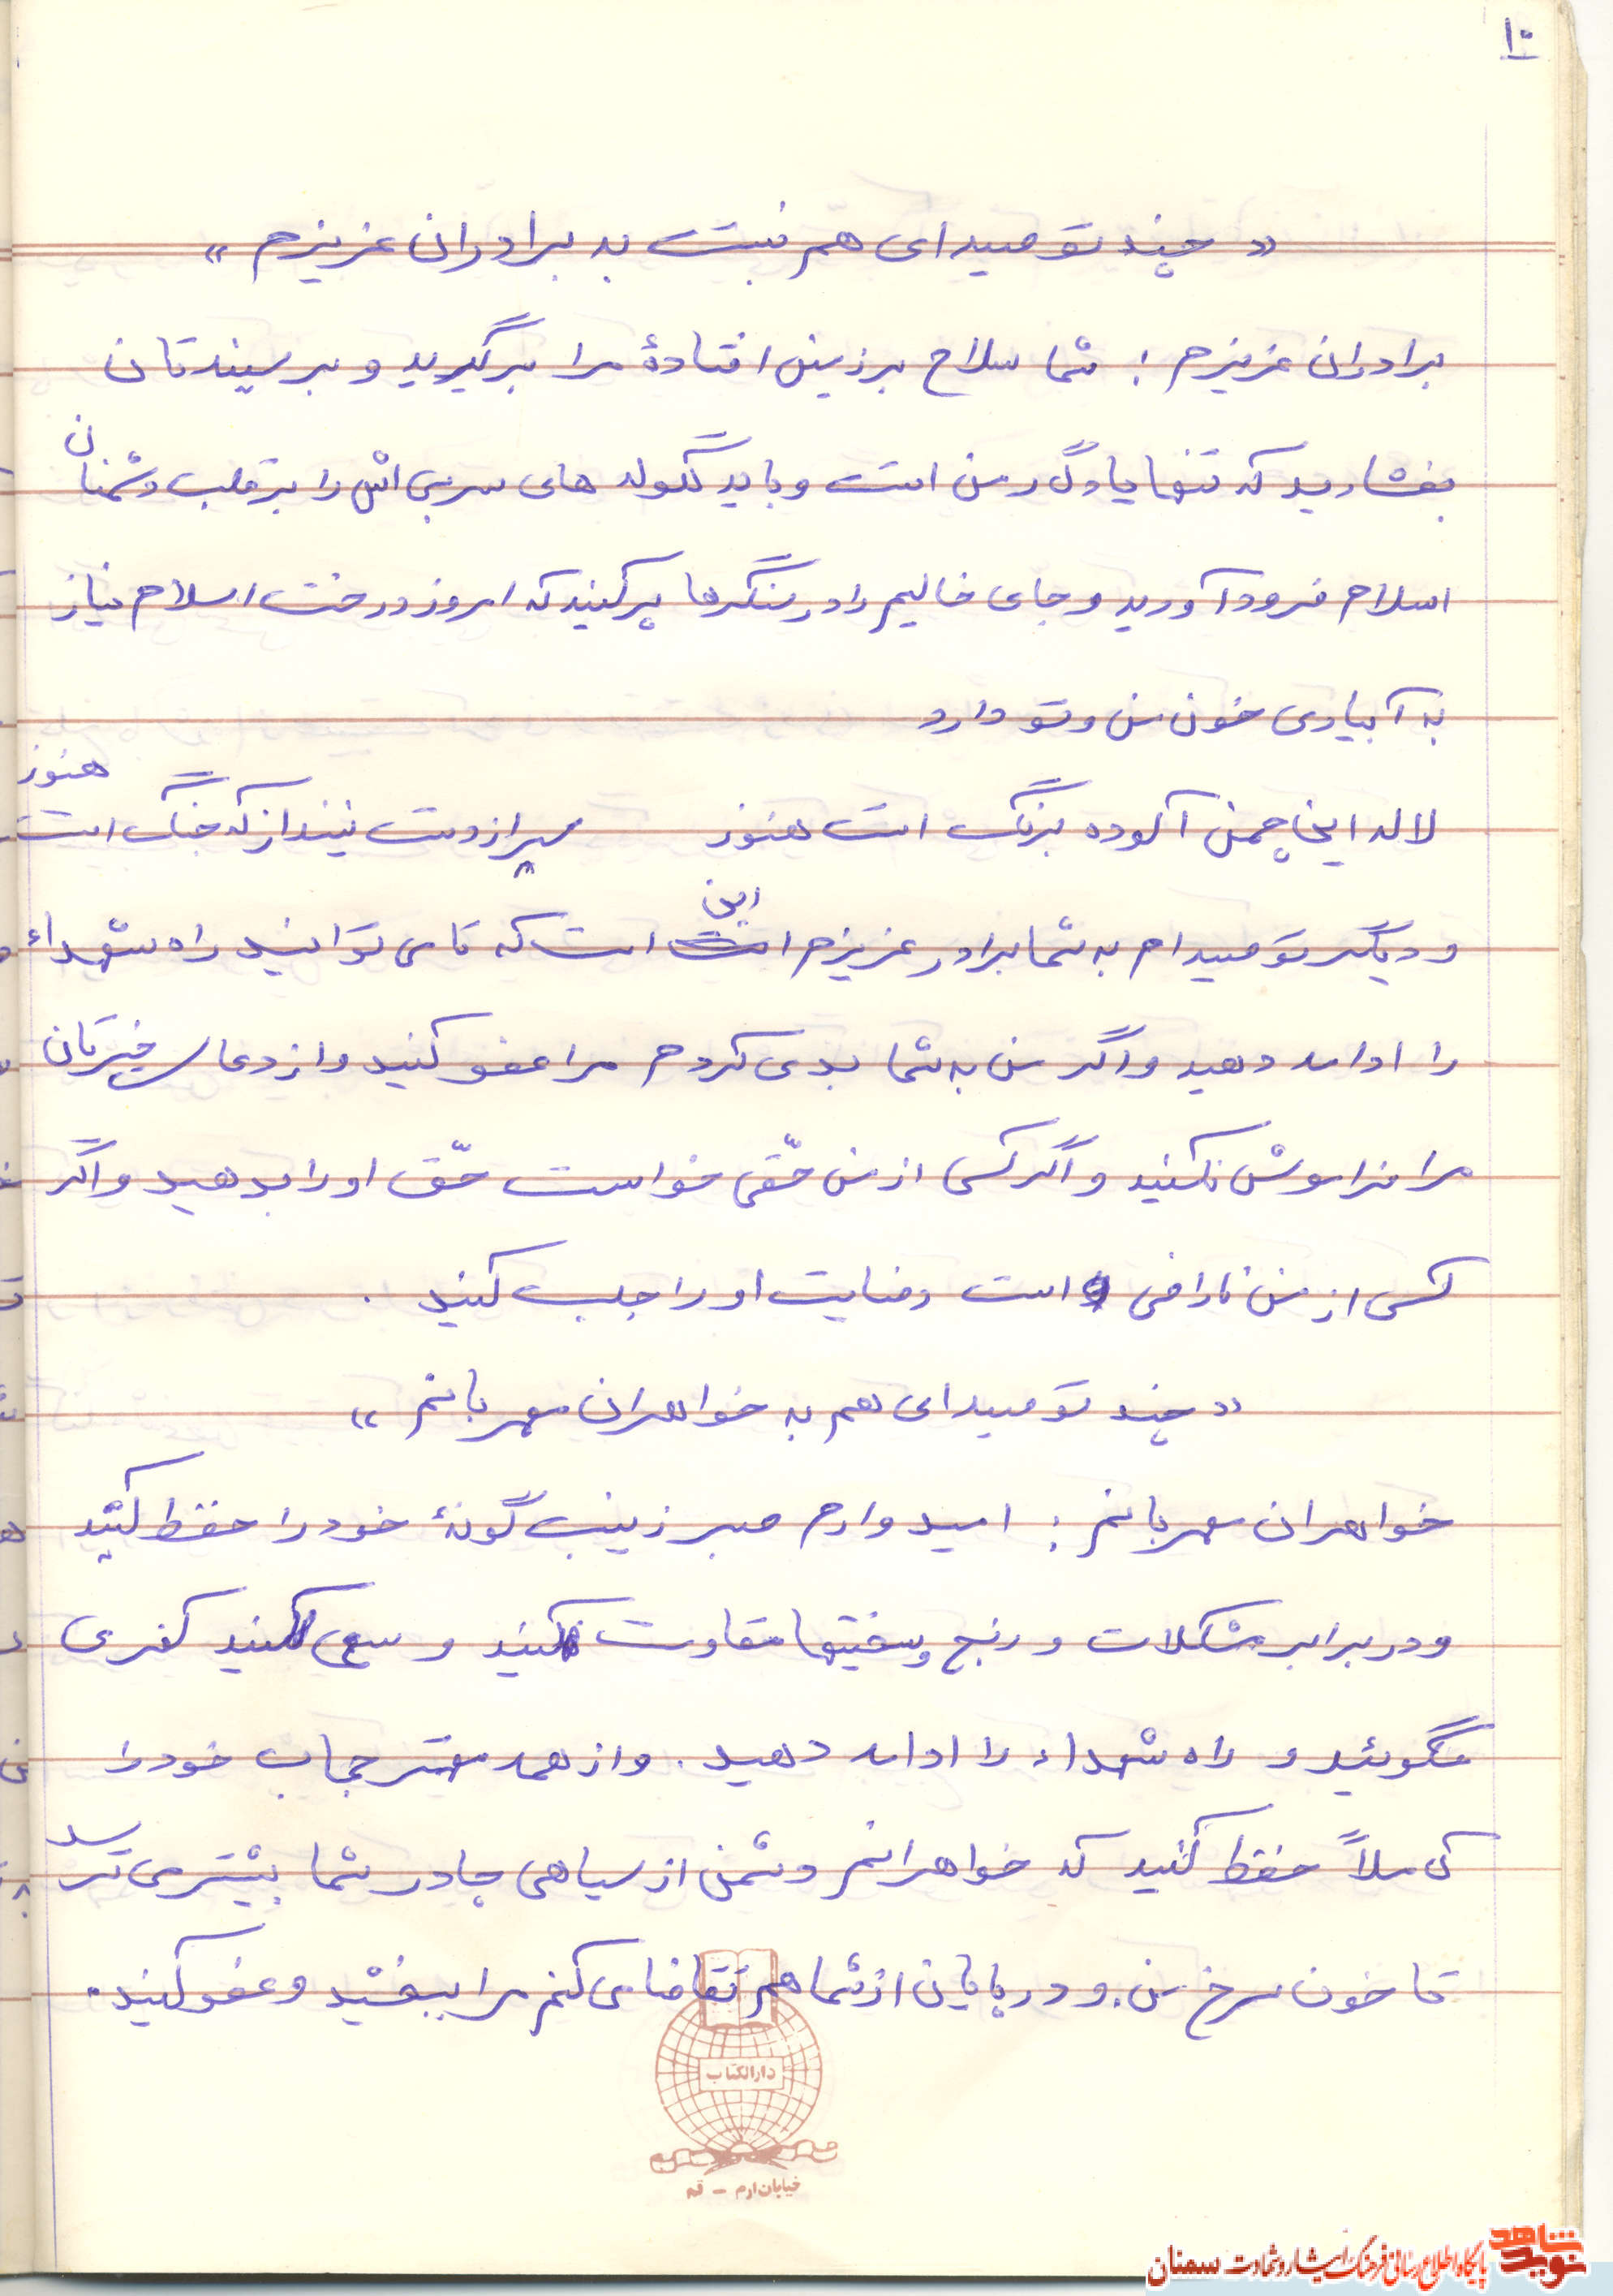 ۱۰
« چند توصیه‌ای هم نسبت به برادران عزیزم »
برادران عزیزم ! شما سلاح بر زمین افتادهٔ مرا برگیرید و بر سینه‌تان
بفشارید که تنها یادگار من است و باید گلوله های سربی اش را بر قلب دشمنان
اسلام فرود آورید و جای خالیم را در سنگرها پر کنید که امروز درخت اسلام نیاز
به آبیاری خون من و تو دارد
لاله این چمن آلوده برنگ است هنوز سپر از دست نینداز که جنگ است هنوز
و دیگر توصیه‌ام به شما برادر عزیزم این است که تا می توانید راه شهداء
را ادامه دهید و اگر من به شما بدی کردم مرا عفو کنید و از دعای خیرتان
مرا فراموش نکنید و اگر کسی از من حقّی خواست حقّ او را بدهید و اگر
کسی از من ناراضی است رضایت او را جلب کنید .
« چند توصیه‌ای هم به خواهران مهربانم »
خواهران مهربانم : امیدوارم صبر زینب گونهٔ خود را حفظ کنید
و در برابر مشکلات و رنج و سختیها مقاومت کنید و سعی کنید کفری
نگوئید و راه شهداء را ادامه دهید . و از همه مهمتر حجاب خود را
کاملاً حفظ کنید که خواهرانم دشمن از سیاهی چادر شما بیشتر می ترسد
تا خون سرخ من . و در پایان از شما هم تقاضا می کنم مرا ببخشید و عفو کنید .
دارالکتاب
خیابان ارم – قم
نوید شاهد
پایگاه اطلاع رسانی فرهنگ ایثار و شهادت سمنان